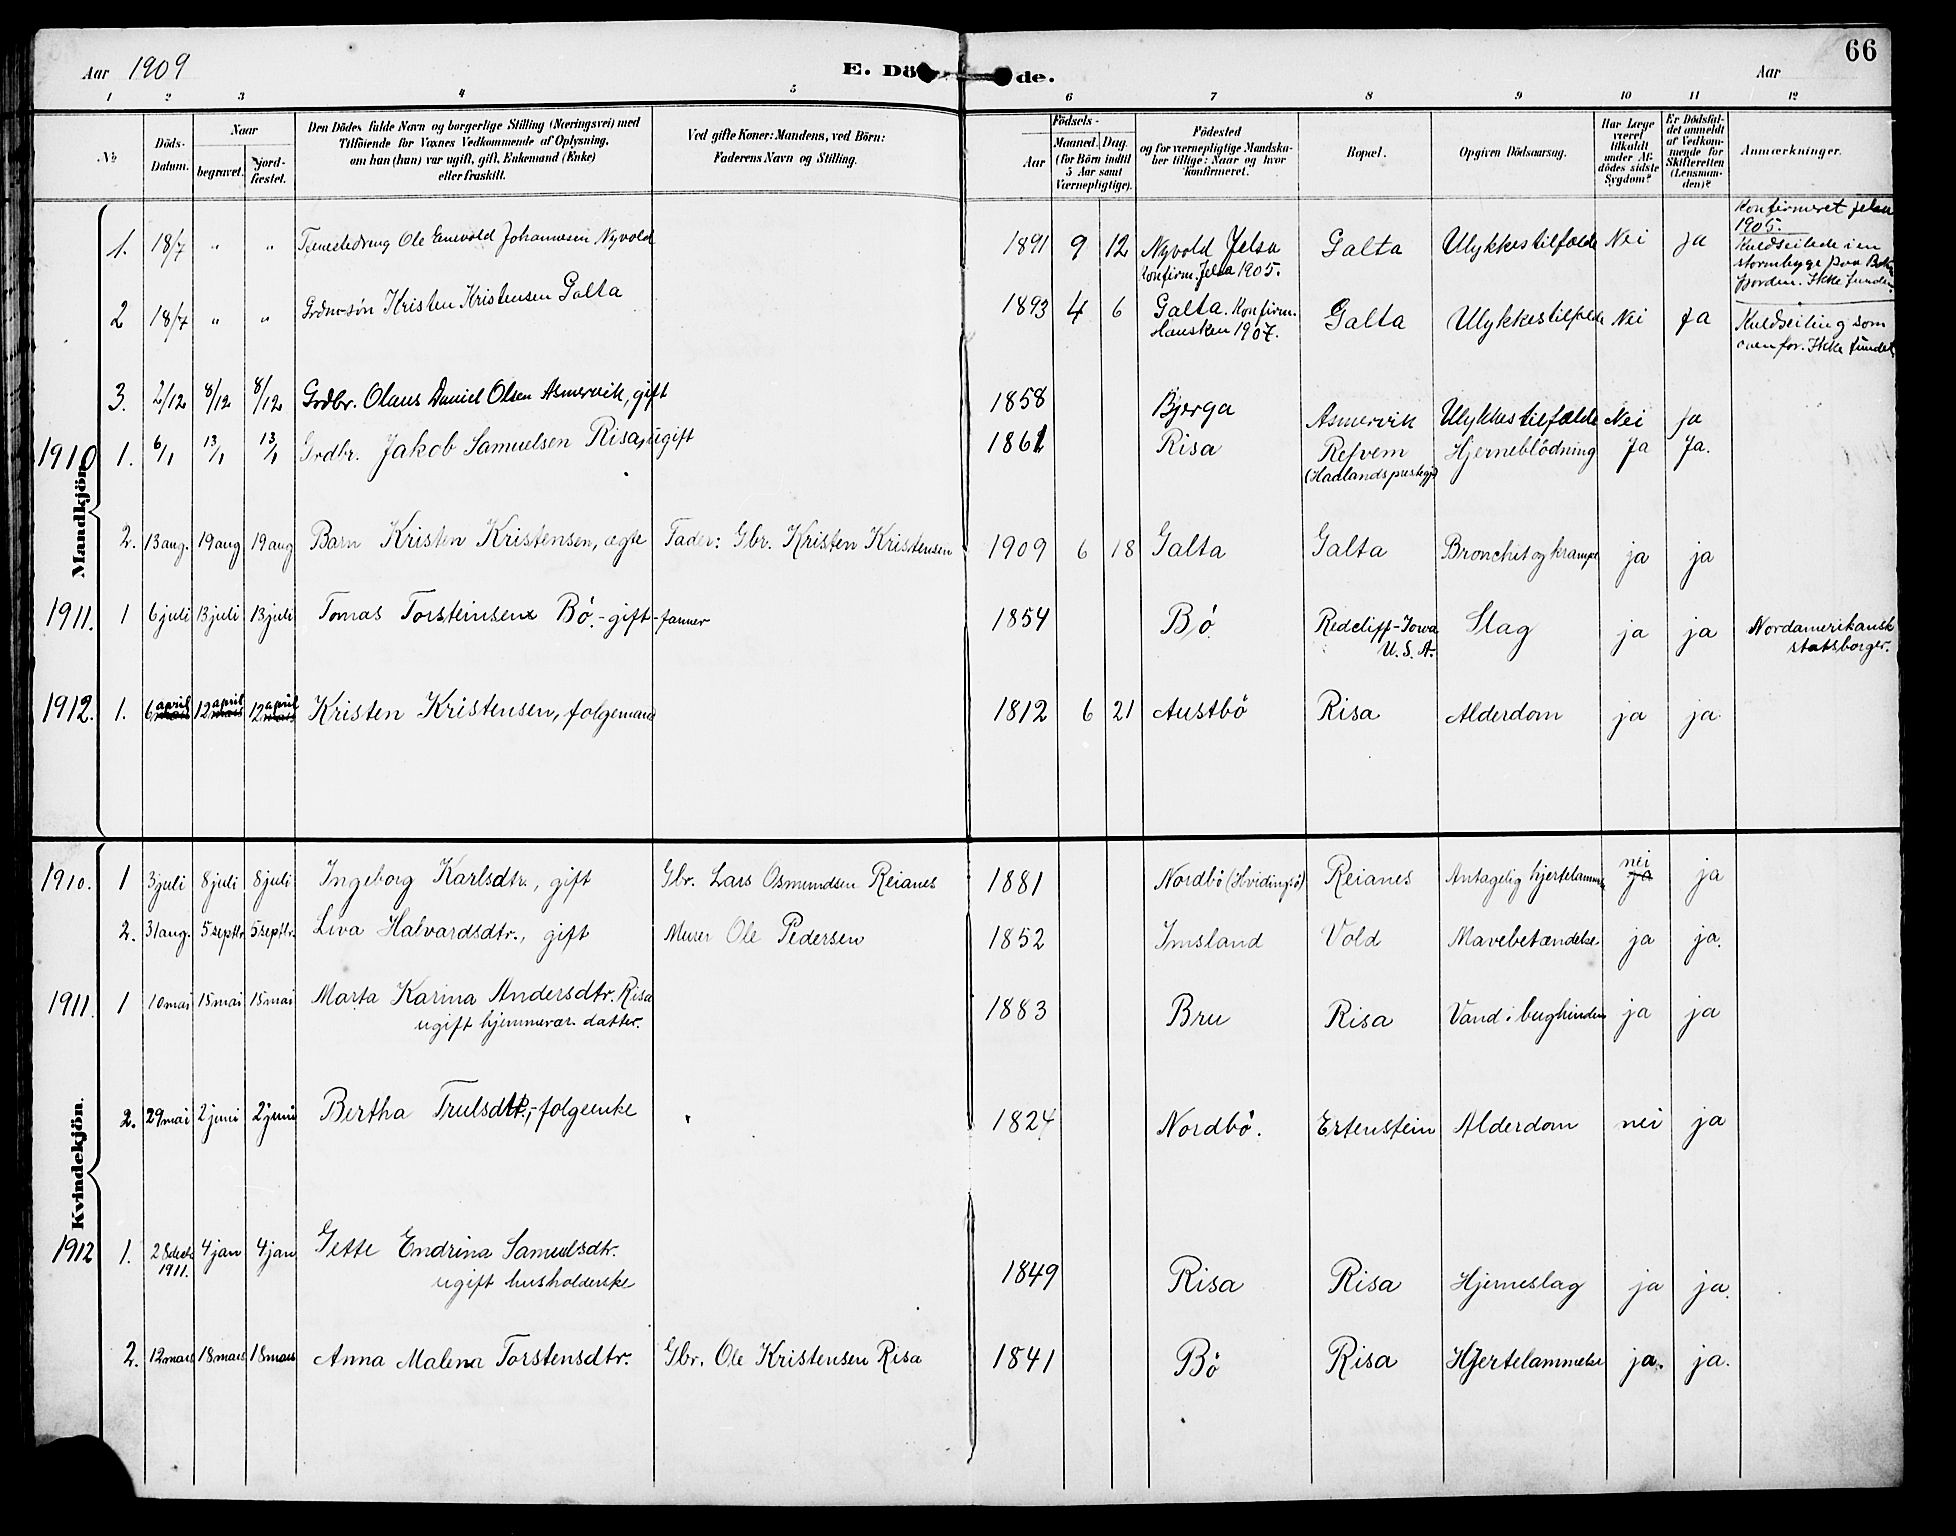 Aar 1909 E. Dö de. Aar 66
1 2 3 4 5 6 7 8 9 10 11 12
No
Döds-Datum.
Naar
begravet.
jord-fæstet.
Den Dödes fulde Navn og borgerlige Stilling (Næringsvei) med
Tilföiende for Voxnes Vedkommende af Oplysning,
om han (hun) var ugift, gift, Enkemand (Enke)
eller fraskilt.
Ved gifte Koner: Mandens, ved Börn:
Faderens Navn og Stilling.
Födsels-
Aar
Maaned. Dag.
(for Börn indtil
5 Aar samt
Værnepligtige).
Födested
og for værnepligtige Mandska-
ber tillige: Naar og hvor
konfirmeret.
Bopæl.
Opgiven Dödsaarsag.
Har Læge
været
tilkaldt
under Af-
dödes sidste
Sygdom?
Er Dödsfal-
det anmeldt
af Vedkom-
mende for
Skifteretten
(Lensman-
den)?
Anmærkninger.
Mandkjön.
1. 18/7 " " Tjenestedreng Ole Enevold Johannesen Nyvold 1891 9 12 Nyvold Jelsa Galta Ulykkestilfælde Nei ja
konfirm. Jelsa 1905.
Konfirmeret Jelsa
1905.
Kuldseilede i en
stormbyge paa
fjorden. Ikke funden
2 18/7 " " Grdm-søn Kristen Kristensen Galta 1893 4 6 Galta. Konfirm. Galta Ulykkestilfælde Nei ja
1907.
Kuldseiling som
ovenfor. Ikke fundet
3. 2/12 8/12 8/12 Grdbr. Olaus Daniel Olsen Asmervik, gift 1858 Bjerga Asmervik Ulykkestilfælde Nei ja
1910 1. 6/1 13/1 13/1 Grdbr. Jakob Samuelsen Risa, ugift 1861 Risa Refvem Hjerneblödning Ja Ja.
2. 13 aug. 19 aug 19 aug Barn Kristen Kristensen, ægte Fader: Gbr. Kristen Kristensen 1909 6 18 Galta Galta Bronchit og krampe ja ja
1911. 1 6 juli 13 juli 13 juli Tomas Torsteinsen Bö. - gift - farmer 1854 Bö Redcliff - Iowa Slag ja ja Nordamerikansk
U.S.A. statsborger.
1912. 1. 6 april 12 april 12 april Kristen Kristensen, folgemand 1812 6 21 Austbö Risa Alderdom ja ja.
Kvindekjön.
1910. 1 3 juli 8 juli 8 juli Ingeborg Karlsdtr., gift Gbr. Lars Osmundsen Reianes 1881 Nordbö (Hvidingsö) Reianes Antagelig hjertelammelse nei ja ja
2. 31 aug. 5 septbr. 5 septbr. Liva Halvardsdtr., gift Murer Ole Pedersen 1852 Imsland Vold Mavebetændelse ja ja.
1911. 1 10 mai 15 mai 15 mai Marta Karina Andersdtr. Risa 1883 Bru Risa Vand i bughinden ja ja
ugift hjemmevær. datter.
2. 29 mai 2 juni 2 juni Bertha Trulsdtr., - folgeenke 1824 Nordbö. Ertenstein Alderdom nei ja
1912 1. 28 decb. 4 jan 4 jan Gette Endrina Samuelsdtr. 1849 Risa Risa Hjerneslag ja ja.
1911. ugift husholderske
2. 12 mars 18 mars 18 mars Anna Malena Torstensdtr. Gbr. Ole Kristensen Risa 1841 Bö Risa Hjertelammelse ja. ja.